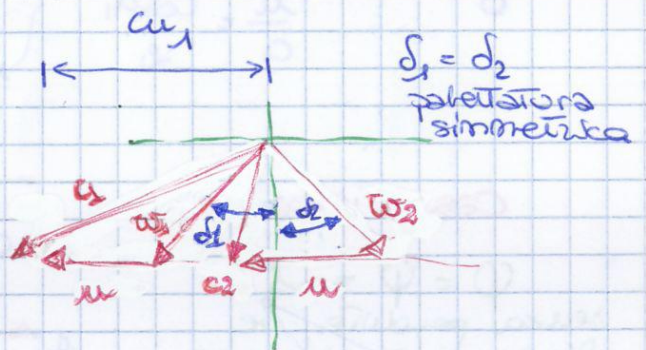 cu1
δ1 = δ2
palettatura
simmetrica
c1
w1
δ1
δ2
w2
u
c2
u